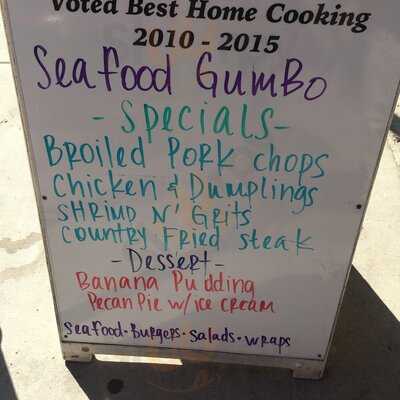 Voted Best Home Cooking
2010 - 2015
Seafood Gumbo
- Specials -
Broiled Pork Chops
Chicken & Dumplings
Shrimp N' Grits
Country Fried Steak
- Dessert -
Banana Pudding
Pecan Pie w/ ice cream
Seafood • Burgers • Salads • Wraps